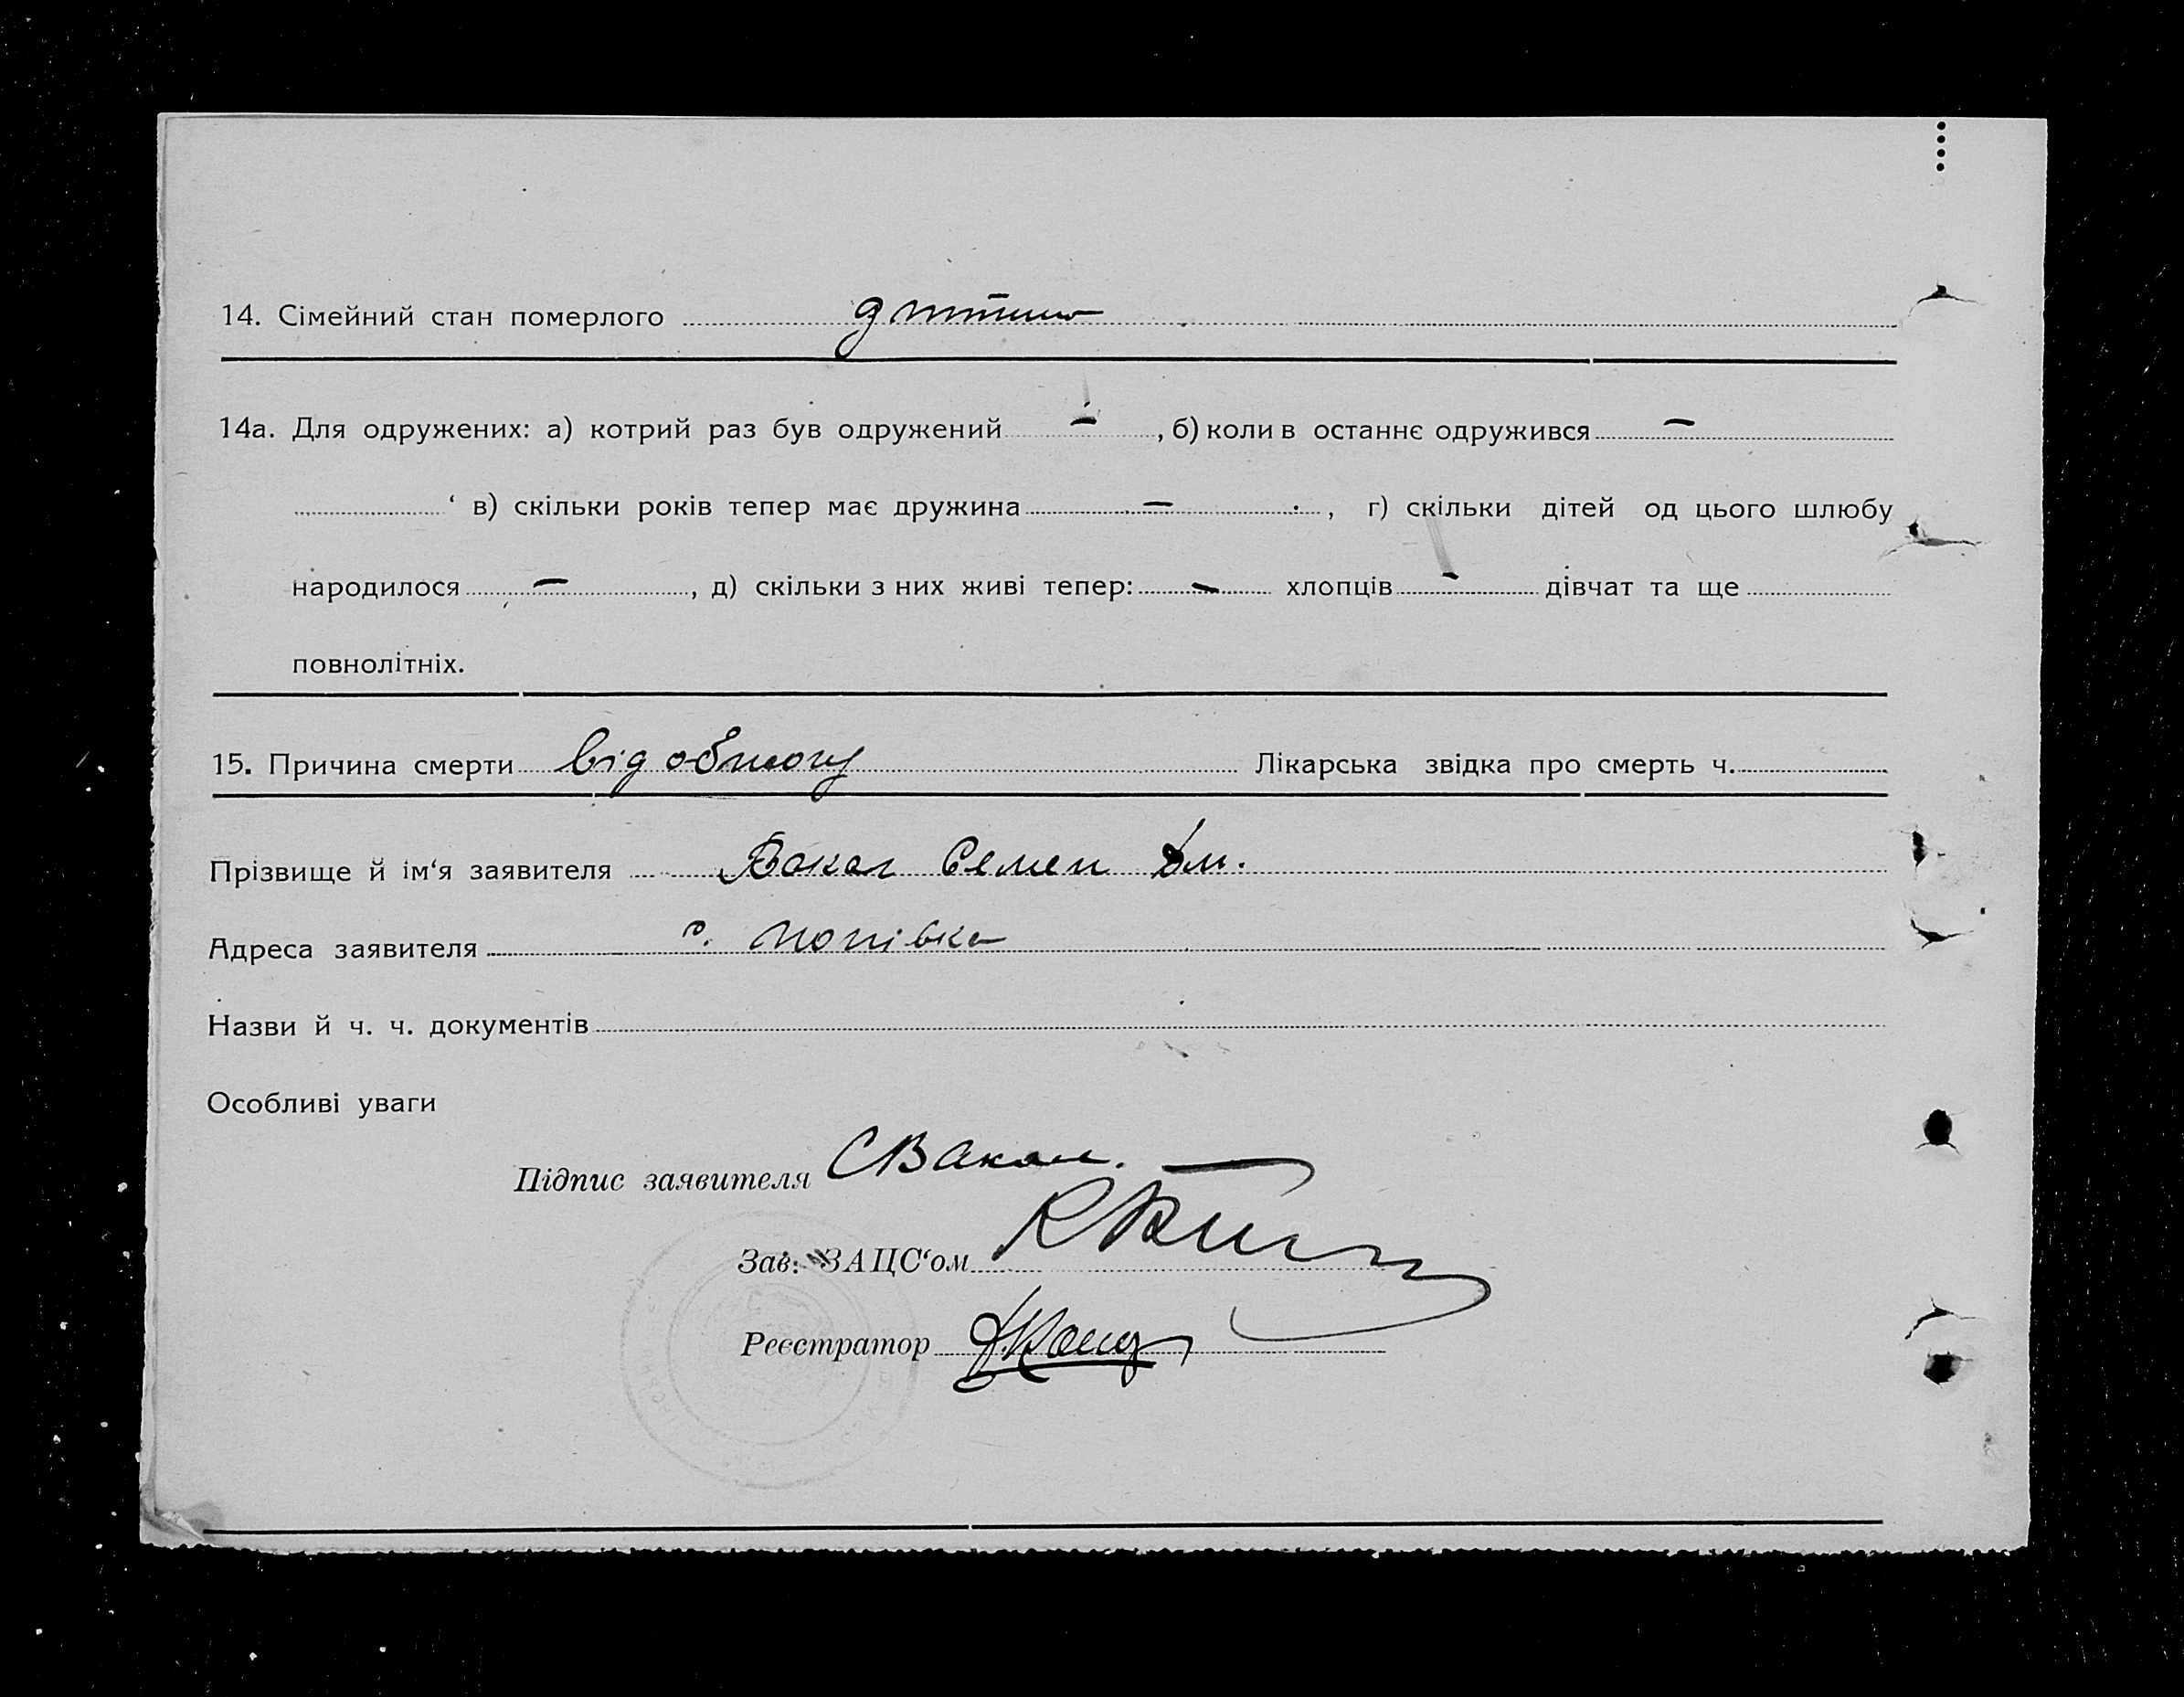 14. Сімейний стан померлого дитина
14а. Для одружених: а) котрий раз був одружений –, б) коли в останнє одружився –
‘ в) скільки років тепер має дружина –, г) скільки дітей од цього шлюбу
народилося –, д) скільки з них живі тепер: – хлопців – дівчат та ще
повнолітніх.
15. Причина смерти від обпогу Лікарська звідка про смерть ч.
Прізвище й ім‘я заявителя Вакал Семен
Адреса заявителя с. Попівка
Назви й ч. ч. документів
Особливі уваги
Підпис заявителя СВакал.
Зав. ЗАЦС‘ом
Реєстратор